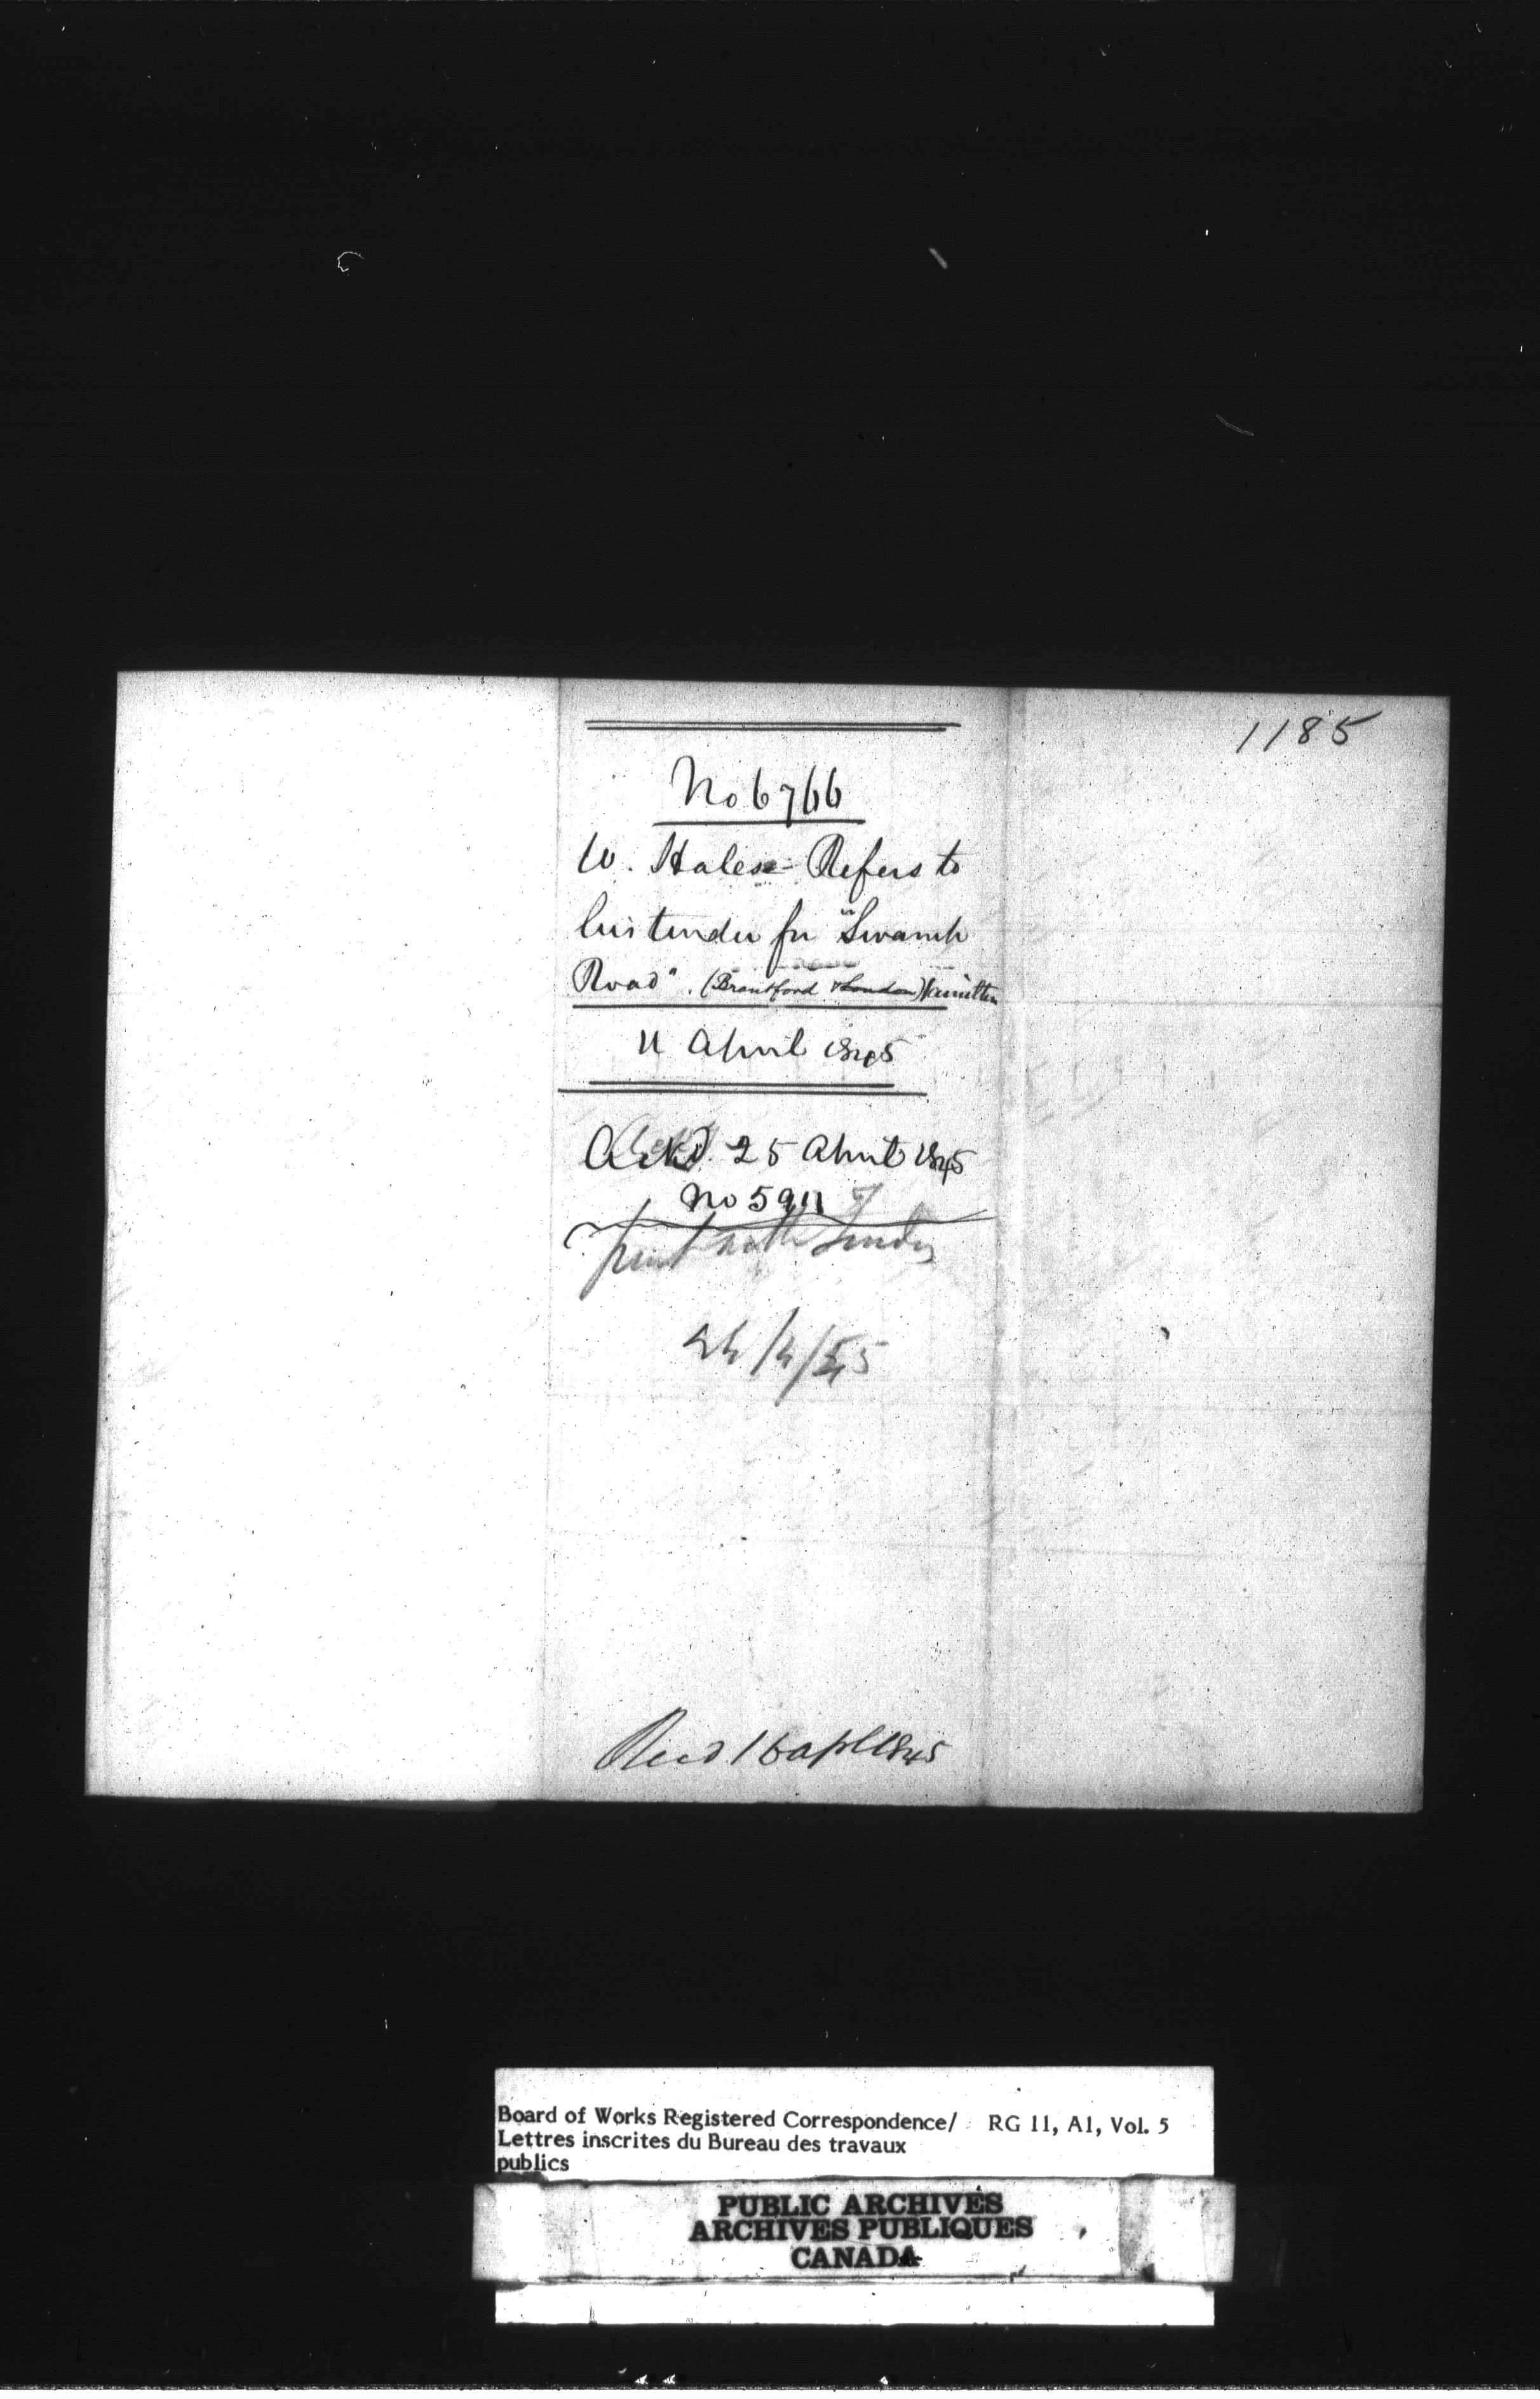 1185
No 6766
W. Hales - Refers to
his tender for "Swamp
Road". (Brantford & London) Hamilton
11 April 1845
Ackd. 25 April 1845
No 5911
put with Tender
24/4/45
Recd 16 apl 1845
Board of Works Registered Correspondence/ RG 11, A1, Vol. 5
Lettres inscrites du Bureau des travaux
publics
PUBLIC ARCHIVES
ARCHIVES PUBLIQUES
CANADA